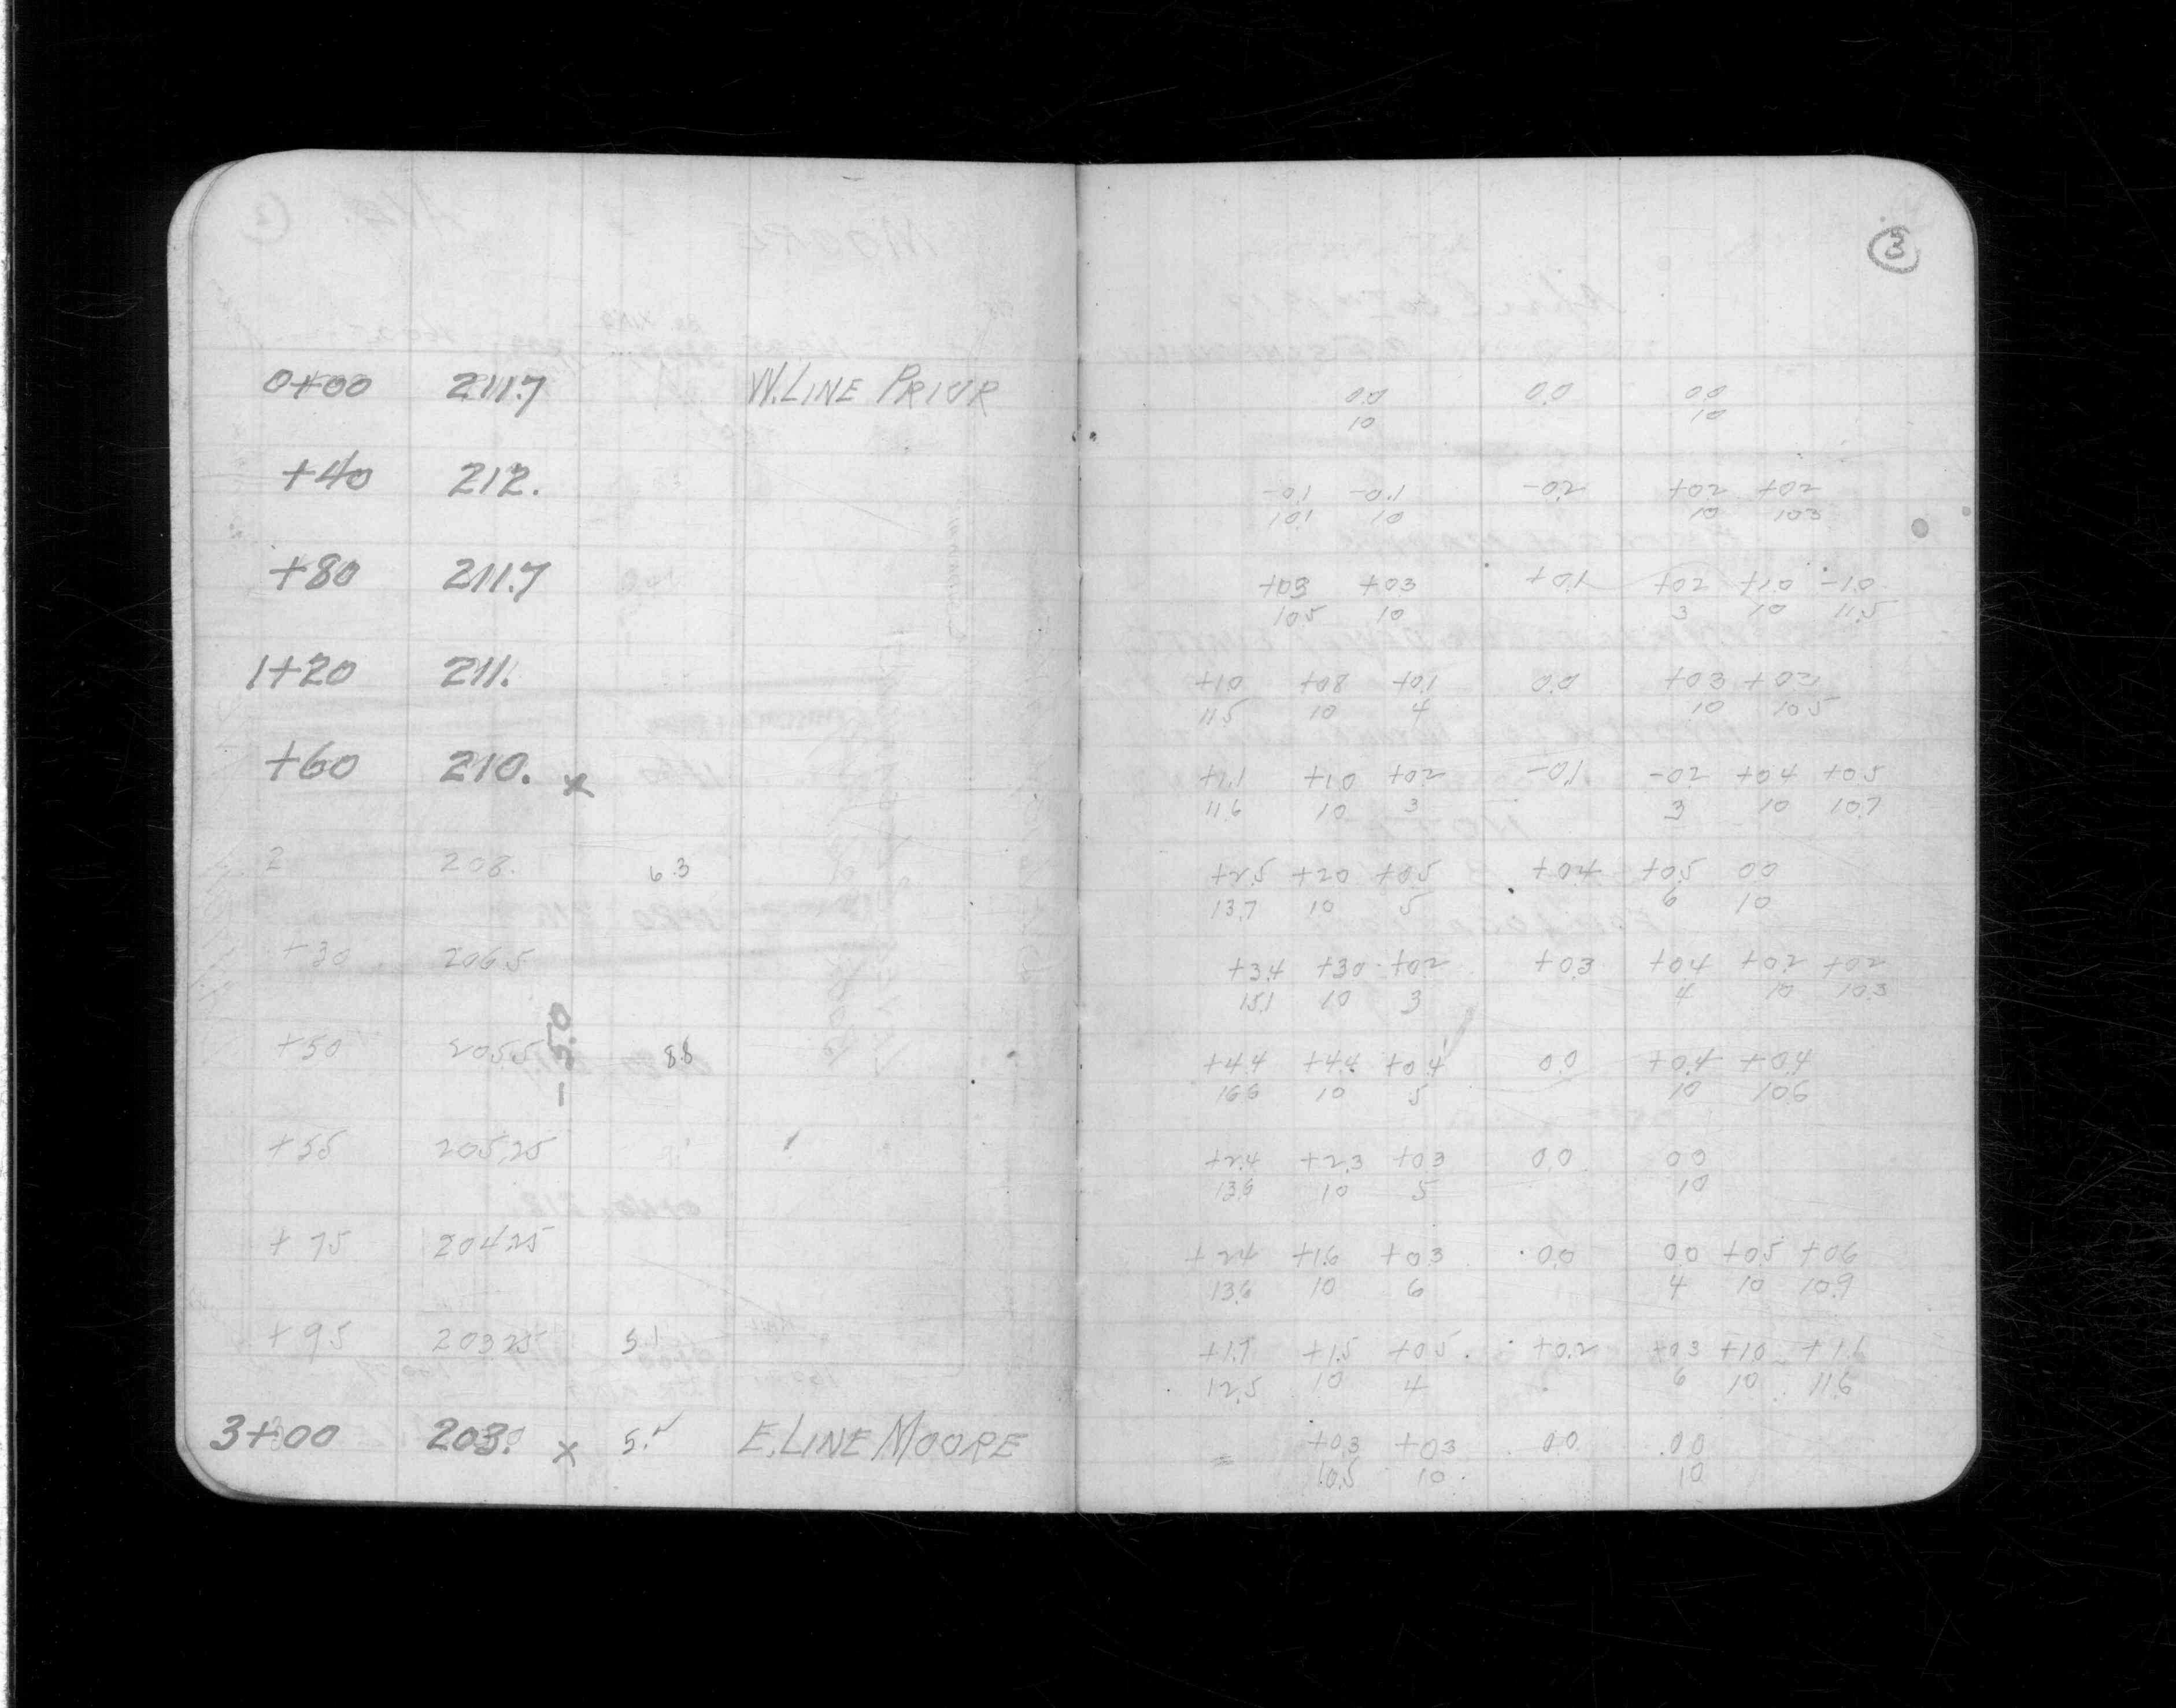 3
0+00 211.7 W. LINE PRIOR
0.0 0.0 0.0
10 10
+40 212.
-0.1 -0.1 -0.2 +0.2 +0.2
10.1 10 10 10.3
+80 211.7
+0.3 +0.3 +0.1 +0.2 +1.0 -1.0
10.5 10 3 10 11.5
1+20 211.
+1.0 +0.8 +0.1 0.0 +0.3 +0.2
11.5 10 4 10 10.5
+60 210. x
+1.1 +1.0 +0.2 -0.1 -0.2 +0.4 +0.5
11.6 10 3 3 10 10.7
2 208. 6.3
+2.5 +2.0 +0.5 +0.4 +0.5 0.0
13.7 10 5 6 10
+30 206.5
+3.4 +3.0 +0.2 +0.3 +0.4 +0.2 +0.2
15.1 10 3 4 10 10.3
+50 205.5 8.8
+4.4 +4.4 +0.4 0.0 +0.4 +0.4
16.6 10 5 10 10.6
+55 205.25
+2.4 +2.3 +0.3 0.0 0.0
13.6 10 5 10
+75 204.25
+2.4 +1.6 +0.3 0.0 0.0 +0.5 +0.6
13.6 10 6 4 10 10.9
+95 203.25 5.1
+1.7 +1.5 +0.5 +0.2 +0.3 +1.0 +1.6
12.5 10 4 6 10 11.6
3+00 203. x E. LINE MOORE
+0.3 +0.3 0.0 0.0
10.5 10 10